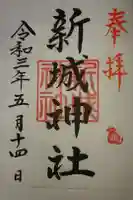 奉拝
新城神社
令和三年五月十四日